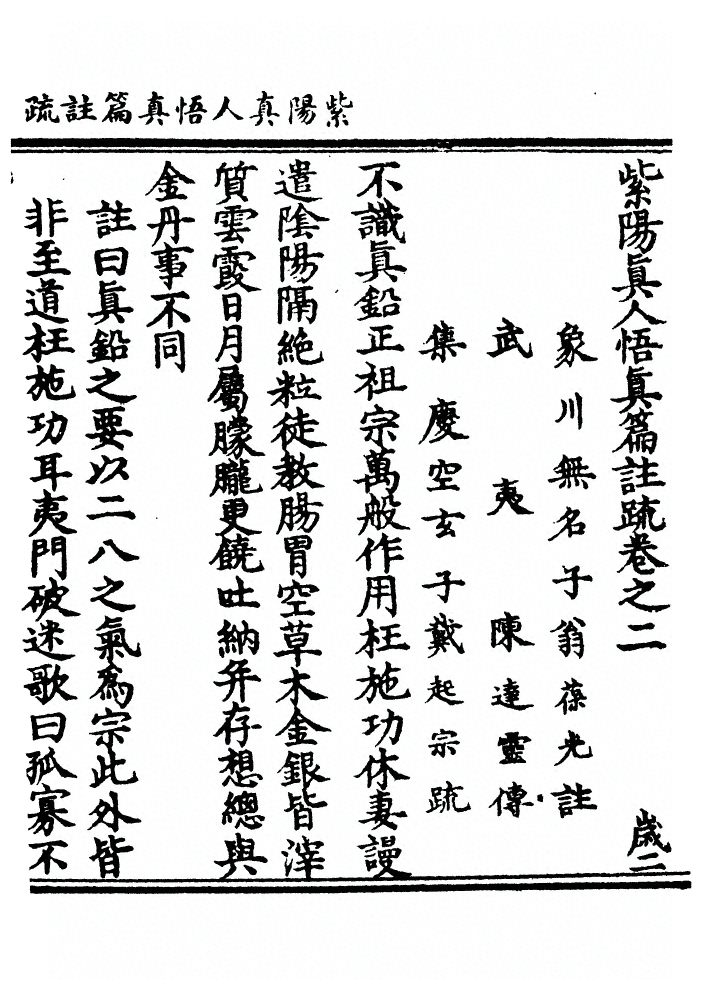 紫陽真人悟真篇註疏
紫陽眞人悟眞篇註疏卷之二
歲二
象川無名子翁葆光註
武夷陳達靈傳
集慶空玄子戴起宗疏
不識眞鉛正祖宗萬般作用枉施功休妻謾
遣陰陽隔絶粒徒教腸胃空草木金銀皆滓
質雲霞日月屬朦朧更饒吐納并存想總與
金丹事不同
註曰眞鉛之要以二八之氣爲宗此外皆
非至道枉施功耳夷門破迷歌曰孤寡不